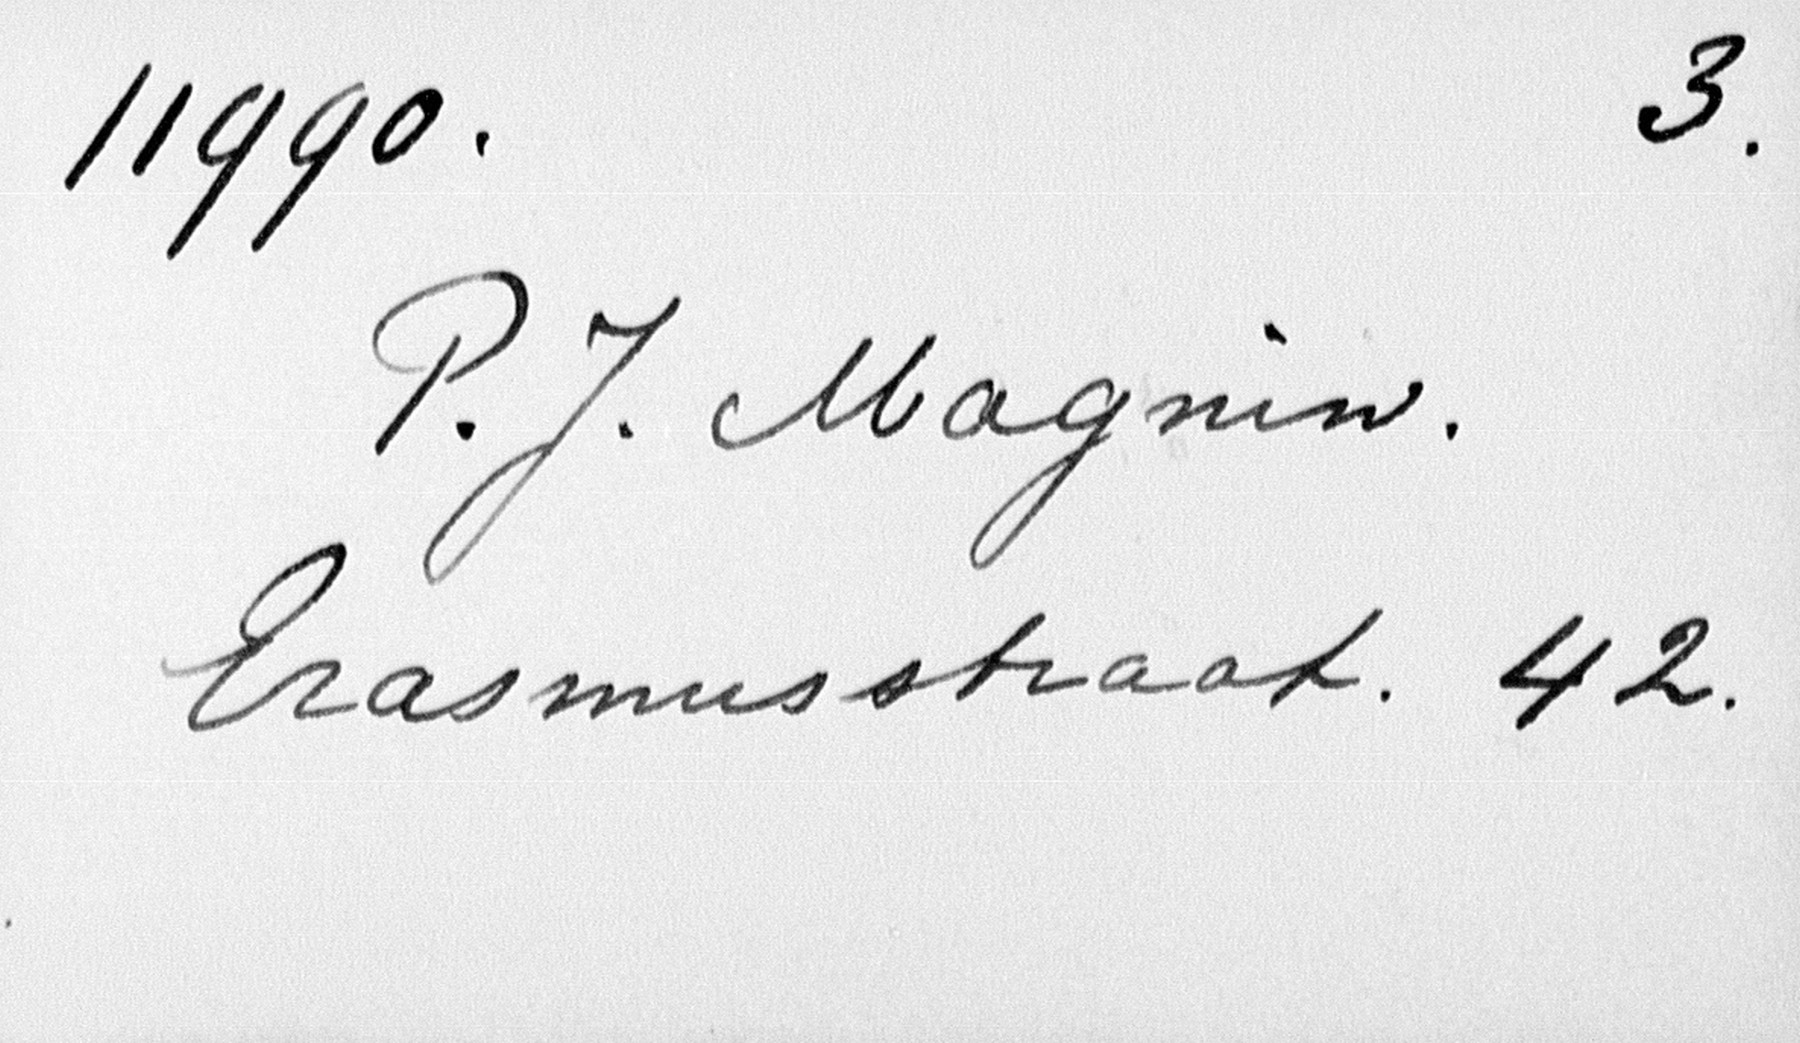 11990. 3.
P. J. Magnin.
Erasmusstraat. 42.